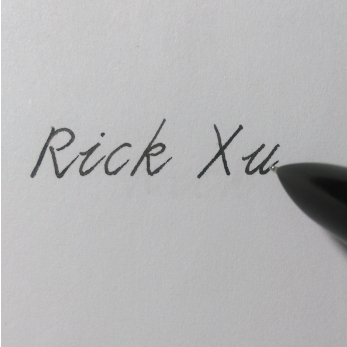 Rick Xu